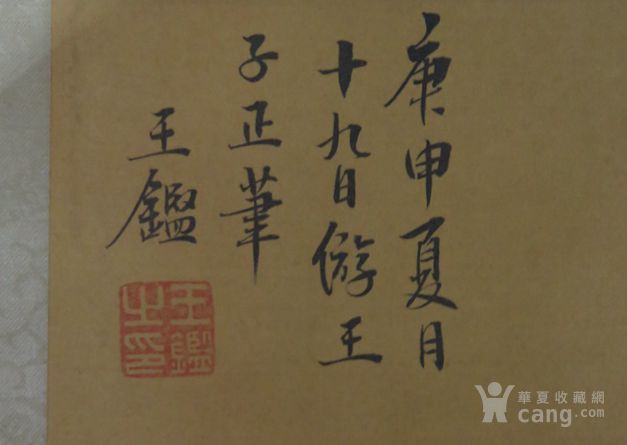 庚申夏月
十九日倣王
子正筆
王鑑
王鑑之印
華夏收藏網
cang.com